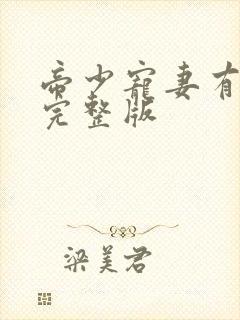 帝少寵妻有
完整版
梁美君